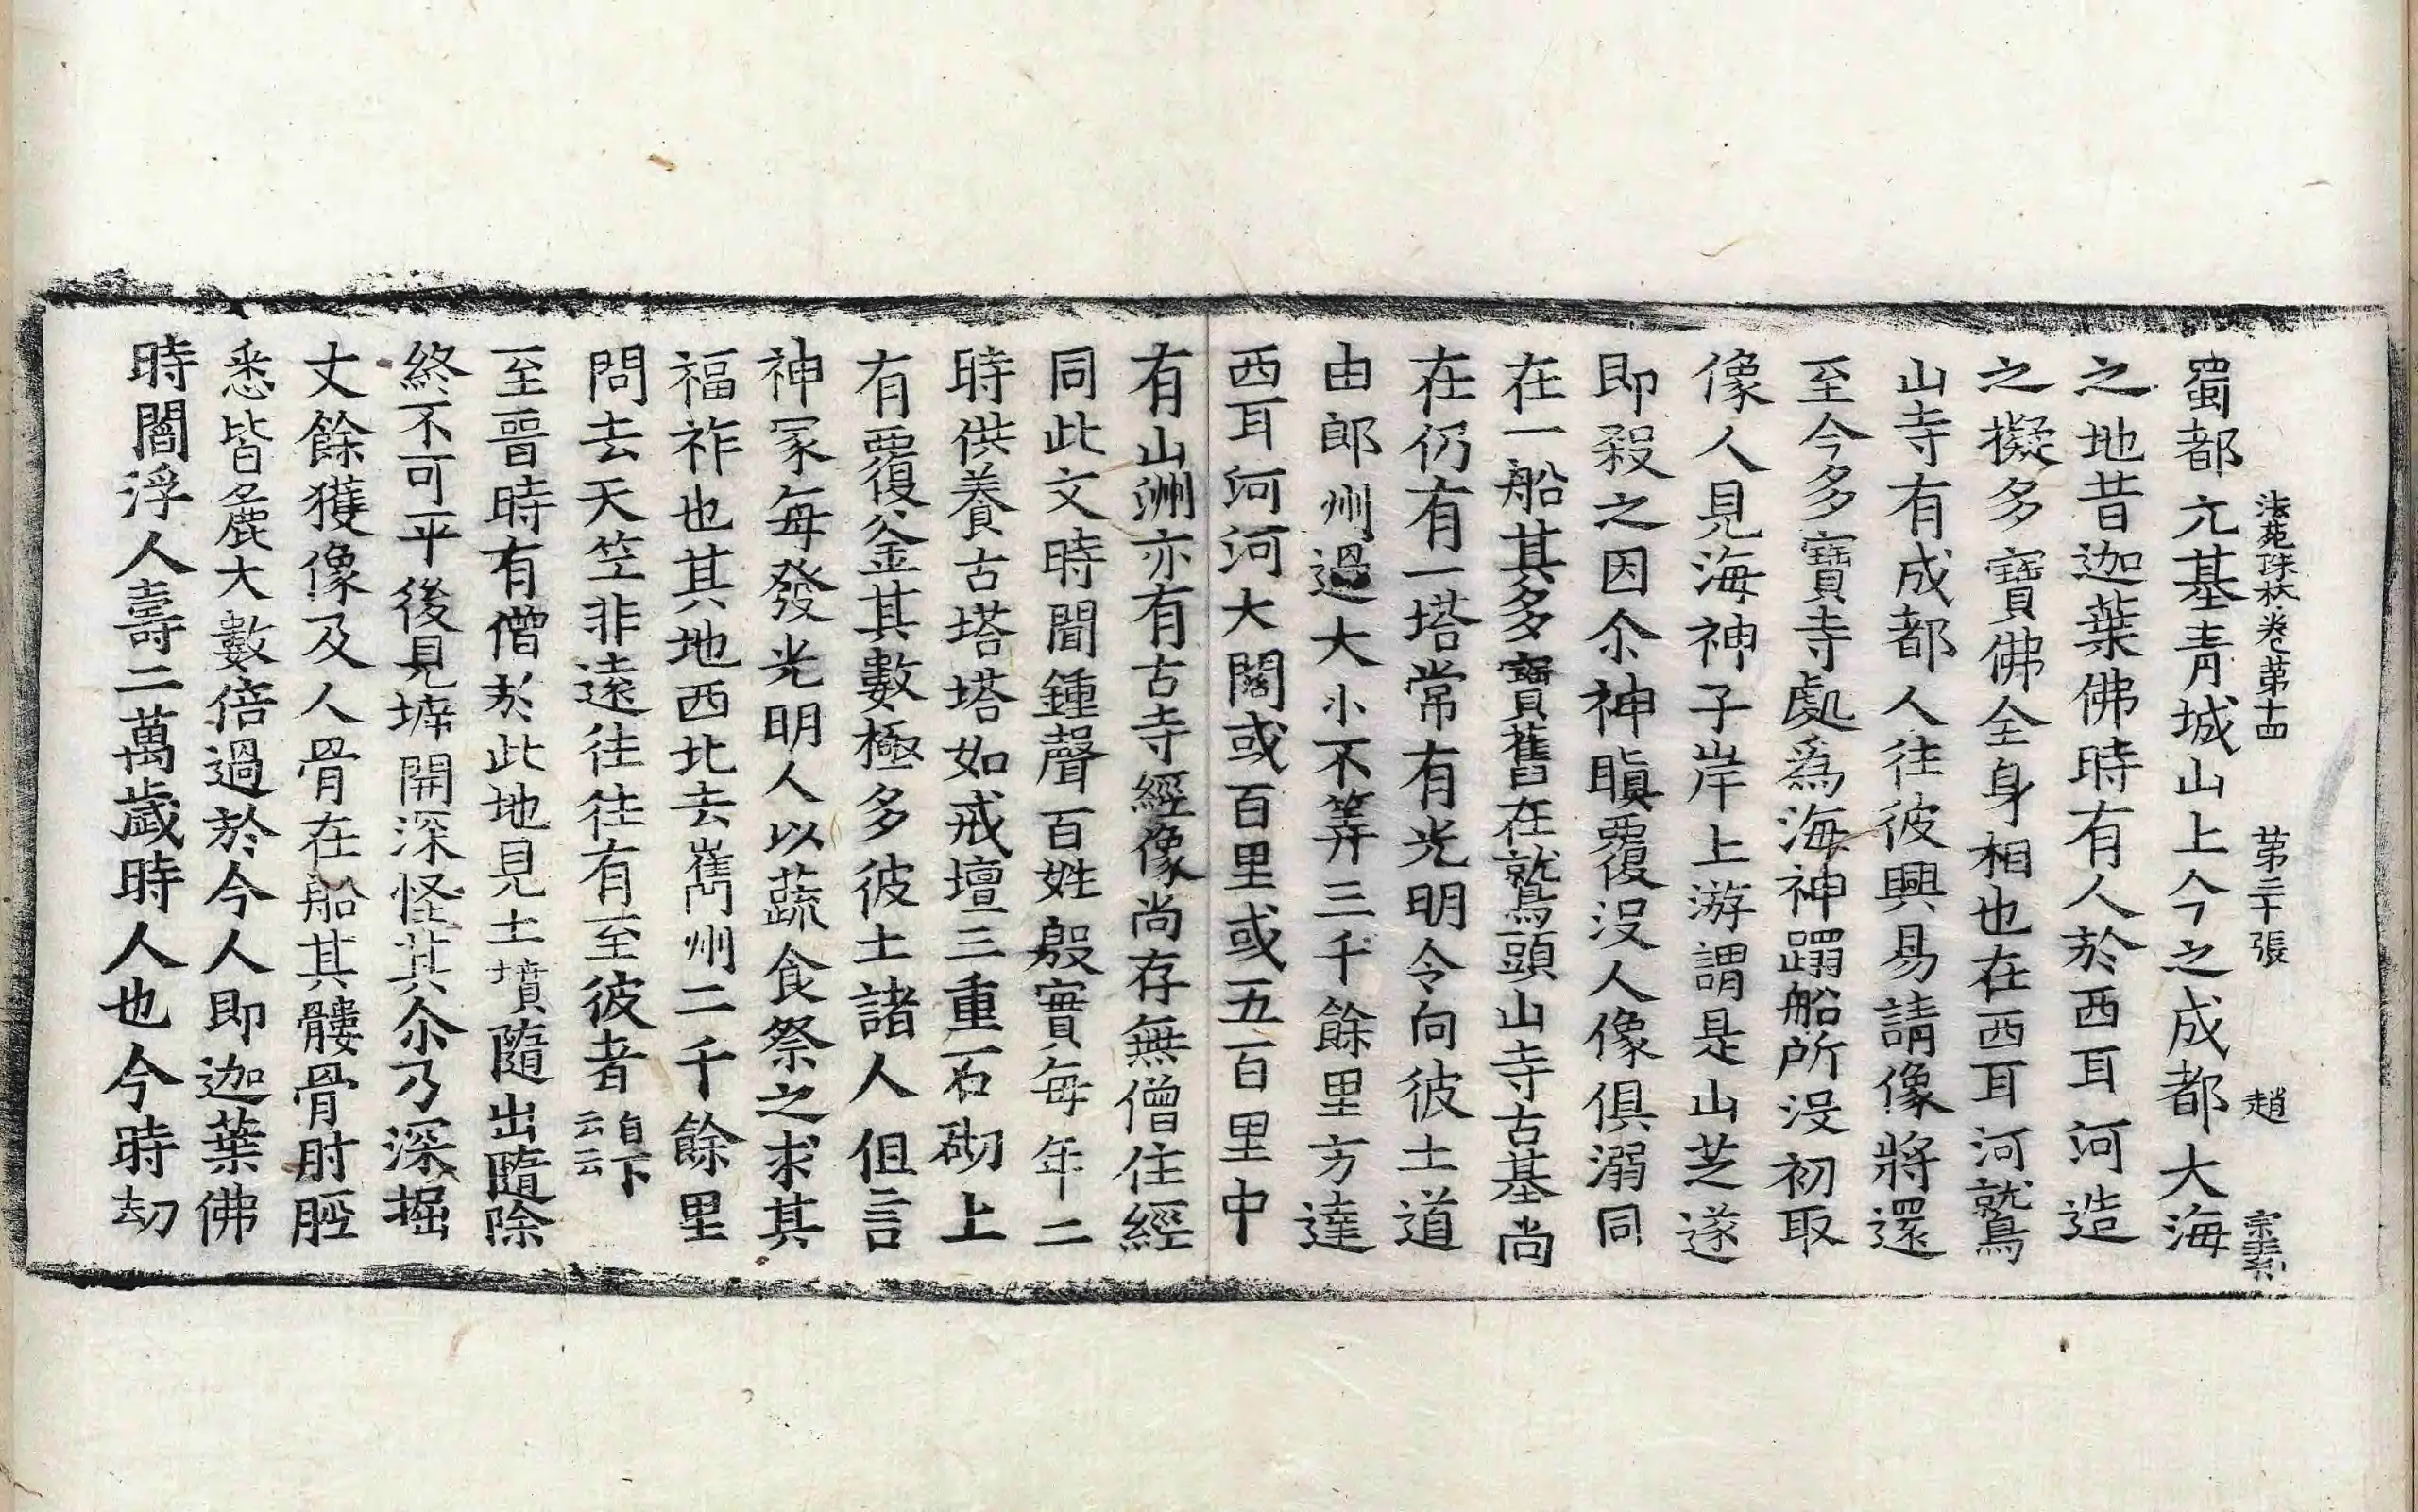 法苑珠林卷第十四 第二十張 趙 宗素
蜀都元基青城山上今之成都大海
之地昔迦葉佛時有人於西耳河造
之擬多寶佛全身相也在西耳河鷲
山寺有成都人往彼興易請像將還
至今多寶寺處爲海神蹋船所没初取
像人見海神子岸上游謂是山芝遂
即殺之因尒神瞋覆没人像俱溺同
在一船其多寶舊在鷲頭山寺古基尚
在仍有一塔常有光明令向彼土道
由郎州過大小不筭三千餘里方達
西耳河河大闊或百里或五百里中
有山洲亦有古寺經像尚存無僧住經
同此文時聞鍾聲百姓殷實每年二
時供養古塔塔如戒壇三重石砌上
有覆釜其數極多彼土諸人但言
神冢每發光明人以蔬食祭之求其
福祚也其地西北去嶲州二千餘里
問去天竺非遠往往有至彼者自下云云
至晉時有僧於此地見土墳隨出隨除
終不可平後見墲開深怪其尒乃深掘
丈餘獲像及人骨在船其髏骨肘脛
悉皆麁大數倍過於今人即迦葉佛
時閻浮人壽二萬歲時人也今時劫